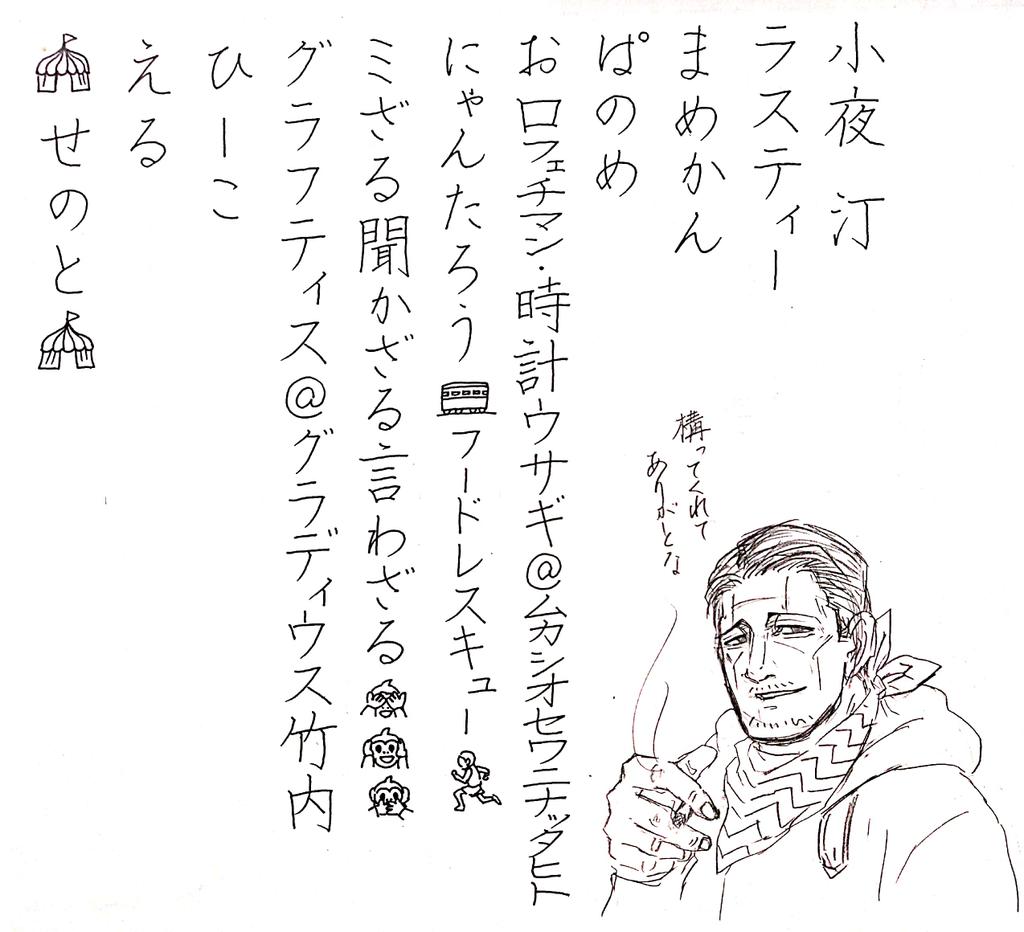 小夜 汀
ラスティー
まめかん
ぱのめ
お口フェチマン・時計ウサギ@ムカシオセワニナッタヒト
にゃんたろう🚃フードレスキュー🏃
ミざる聞かざる言わざる🙈🙉🙊
グラフティス@グラディウス竹内
ひーこ
える
🎪せのと🎪
構ってくれて
ありがとな